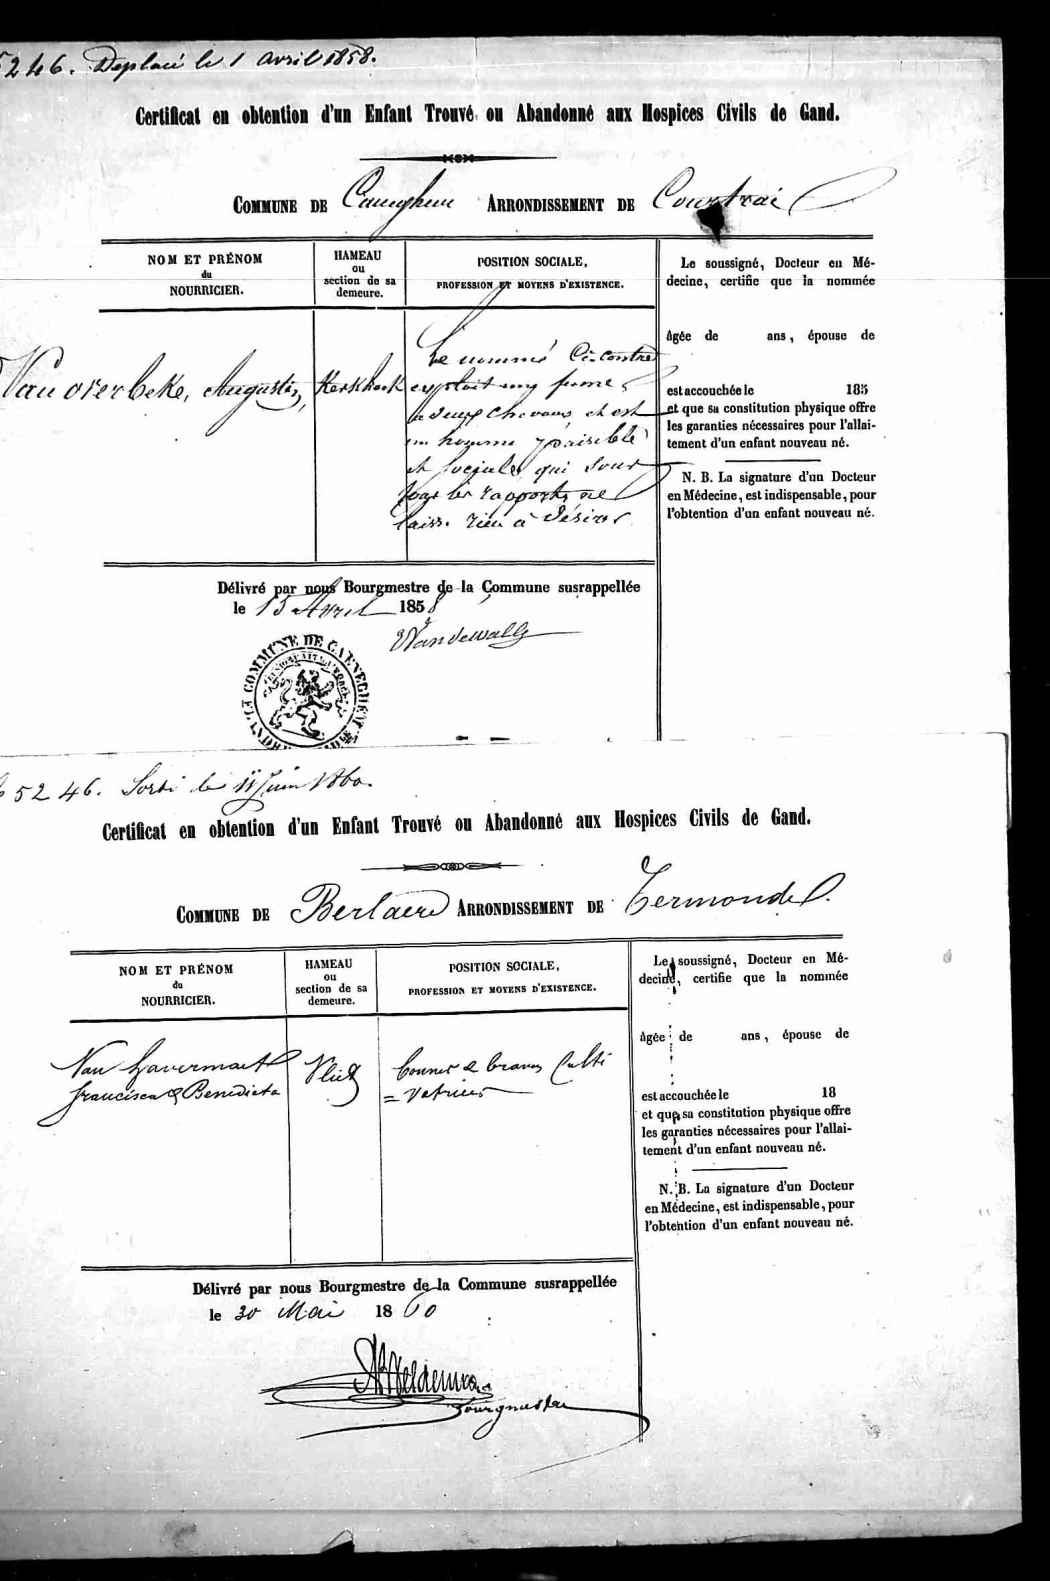 5246. Deplacé le 1 avril 1858.
Certificat en obtention d'un Enfant Trouvé ou Abandonné aux Hospices Civils de Gand.
COMMUNE DE Caneghem ARRONDISSEMENT DE Courtrai
NOM ET PRÉNOM
du
NOURRICIER.
HAMEAU
ou
section de sa
demeure.
POSITION SOCIALE,
PROFESSION ET MOYENS D'EXISTENCE.
Van overbeke, Augustin,
Kerkhoek
Le nommé Ci-contre
exploit une ferme
a deux chevaux et est
un homme paisible
et sociale, qui sous
tous les rapports ne
laisse rien à désirer
Le soussigné, Docteur en Mé-
decine, certifie que la nommée
âgée de ans, épouse de
est accouchée le 185
et que sa constitution physique offre
les garanties nécessaires pour l'allai-
tement d'un enfant nouveau né.
N. B. La signature d'un Docteur
en Médecine, est indispensable, pour
l'obtention d'un enfant nouveau né.
Délivré par nous Bourgmestre de la Commune susrappellée
le 15 Avril 1858
Vandewalle
LA COMMUNE DE CAENEGHEM
5246. Sorti le 11 Juin 1860.
Certificat en obtention d'un Enfant Trouvé ou Abandonné aux Hospices Civils de Gand.
COMMUNE DE Berlaere ARRONDISSEMENT DE Termonde
NOM ET PRÉNOM
du
NOURRICIER.
HAMEAU
ou
section de sa
demeure.
POSITION SOCIALE,
PROFESSION ET MOYENS D'EXISTENCE.
Van Havermaet
francisca & Benedicta
Vliet
bonnes & braves Culti
= vatrices
Le soussigné, Docteur en Mé-
decine, certifie que la nommée
âgée de ans, épouse de
est accouchée le 18
et que sa constitution physique offre
les garanties nécessaires pour l'allai-
tement d'un enfant nouveau né.
N. B. La signature d'un Docteur
en Médecine, est indispensable, pour
l'obtention d'un enfant nouveau né.
Délivré par nous Bourgmestre de la Commune susrappellée
le 30 Mai 1860
bourgmestre